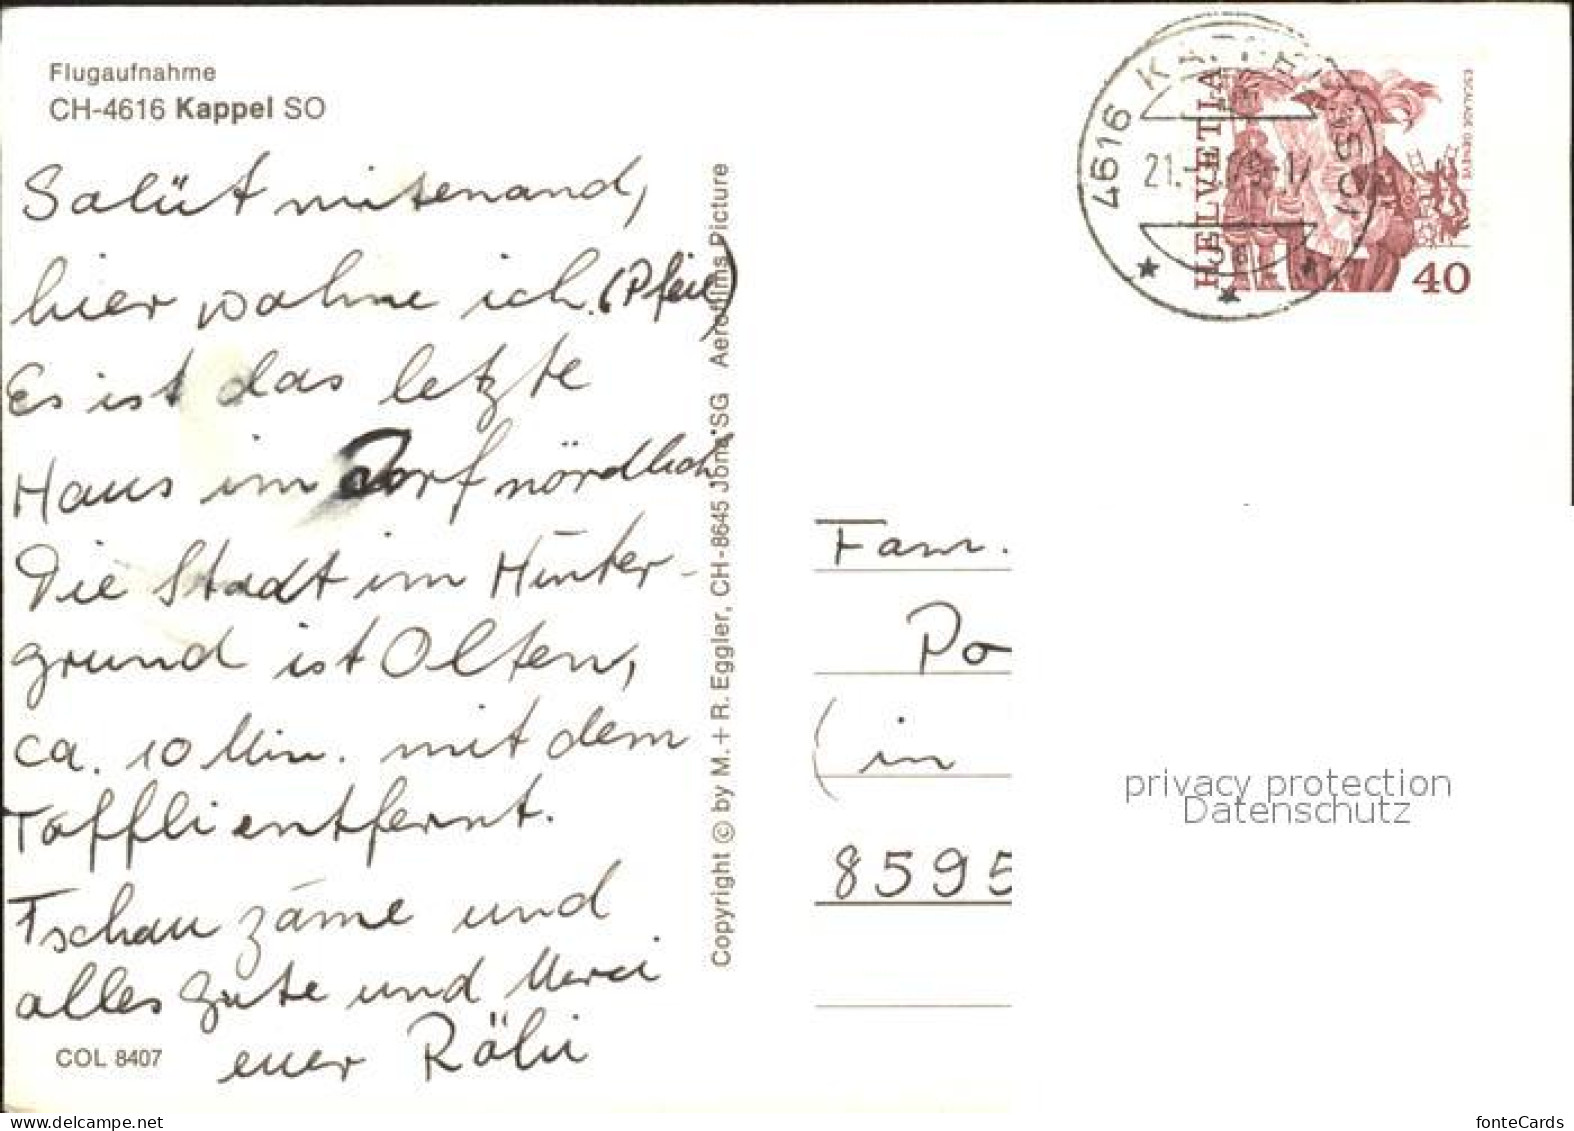 Flugaufnahme
CH-4616 Kappel SO
Salüt mitenand,
hier wohne ich. (Pfeil)
Es ist das letzte
Haus im Dorf nördlich
Die Stadt im Hinter-
grund ist Olten,
ca. 10 Min. mit dem
Töffli entfernt.
Tschau zäme und
alles gute und Merci
euer Röbi
COL 8407
Copyright © by M. + R. Eggler, CH-8645 Jona SG Aerofilms Picture
4616
21.
HELVETIA
ESCALADE GENÈVE
40
Fam.
Po
(in
8595
privacy protection
Datenschutz
www.delcampe.net
fonteCards